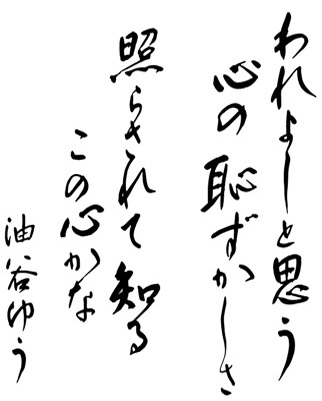 われよしと思う
心の恥ずかしさ
照らされて知る
この心かな
油谷ゆう